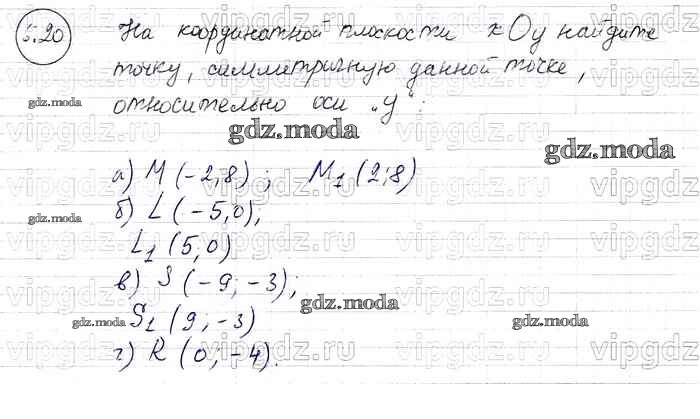 6.20
На координатной плоскости xOy найдите
точку, симметричную данной точке,
относительно оси "y":
gdz.moda
gdz.moda
gdz.moda
а) M (-2;8); M1 (2;8)
б) L (-5,0);
gdz.moda
L1 (5,0)
в) S (-9; -3);
gdz.moda
S1 (9; -3)
gdz.moda
gdz.moda
г) R (0; -4).
vipgdz.ru vipgdz.ru vipgdz.ru
vipgdz.ru vipgdz.ru vipgdz.ru
vipgdz.ru vipgdz.ru vipgdz.ru
vipgdz.ru vipgdz.ru vipgdz.ru
vipgdz.ru vipgdz.ru vipgdz.ru